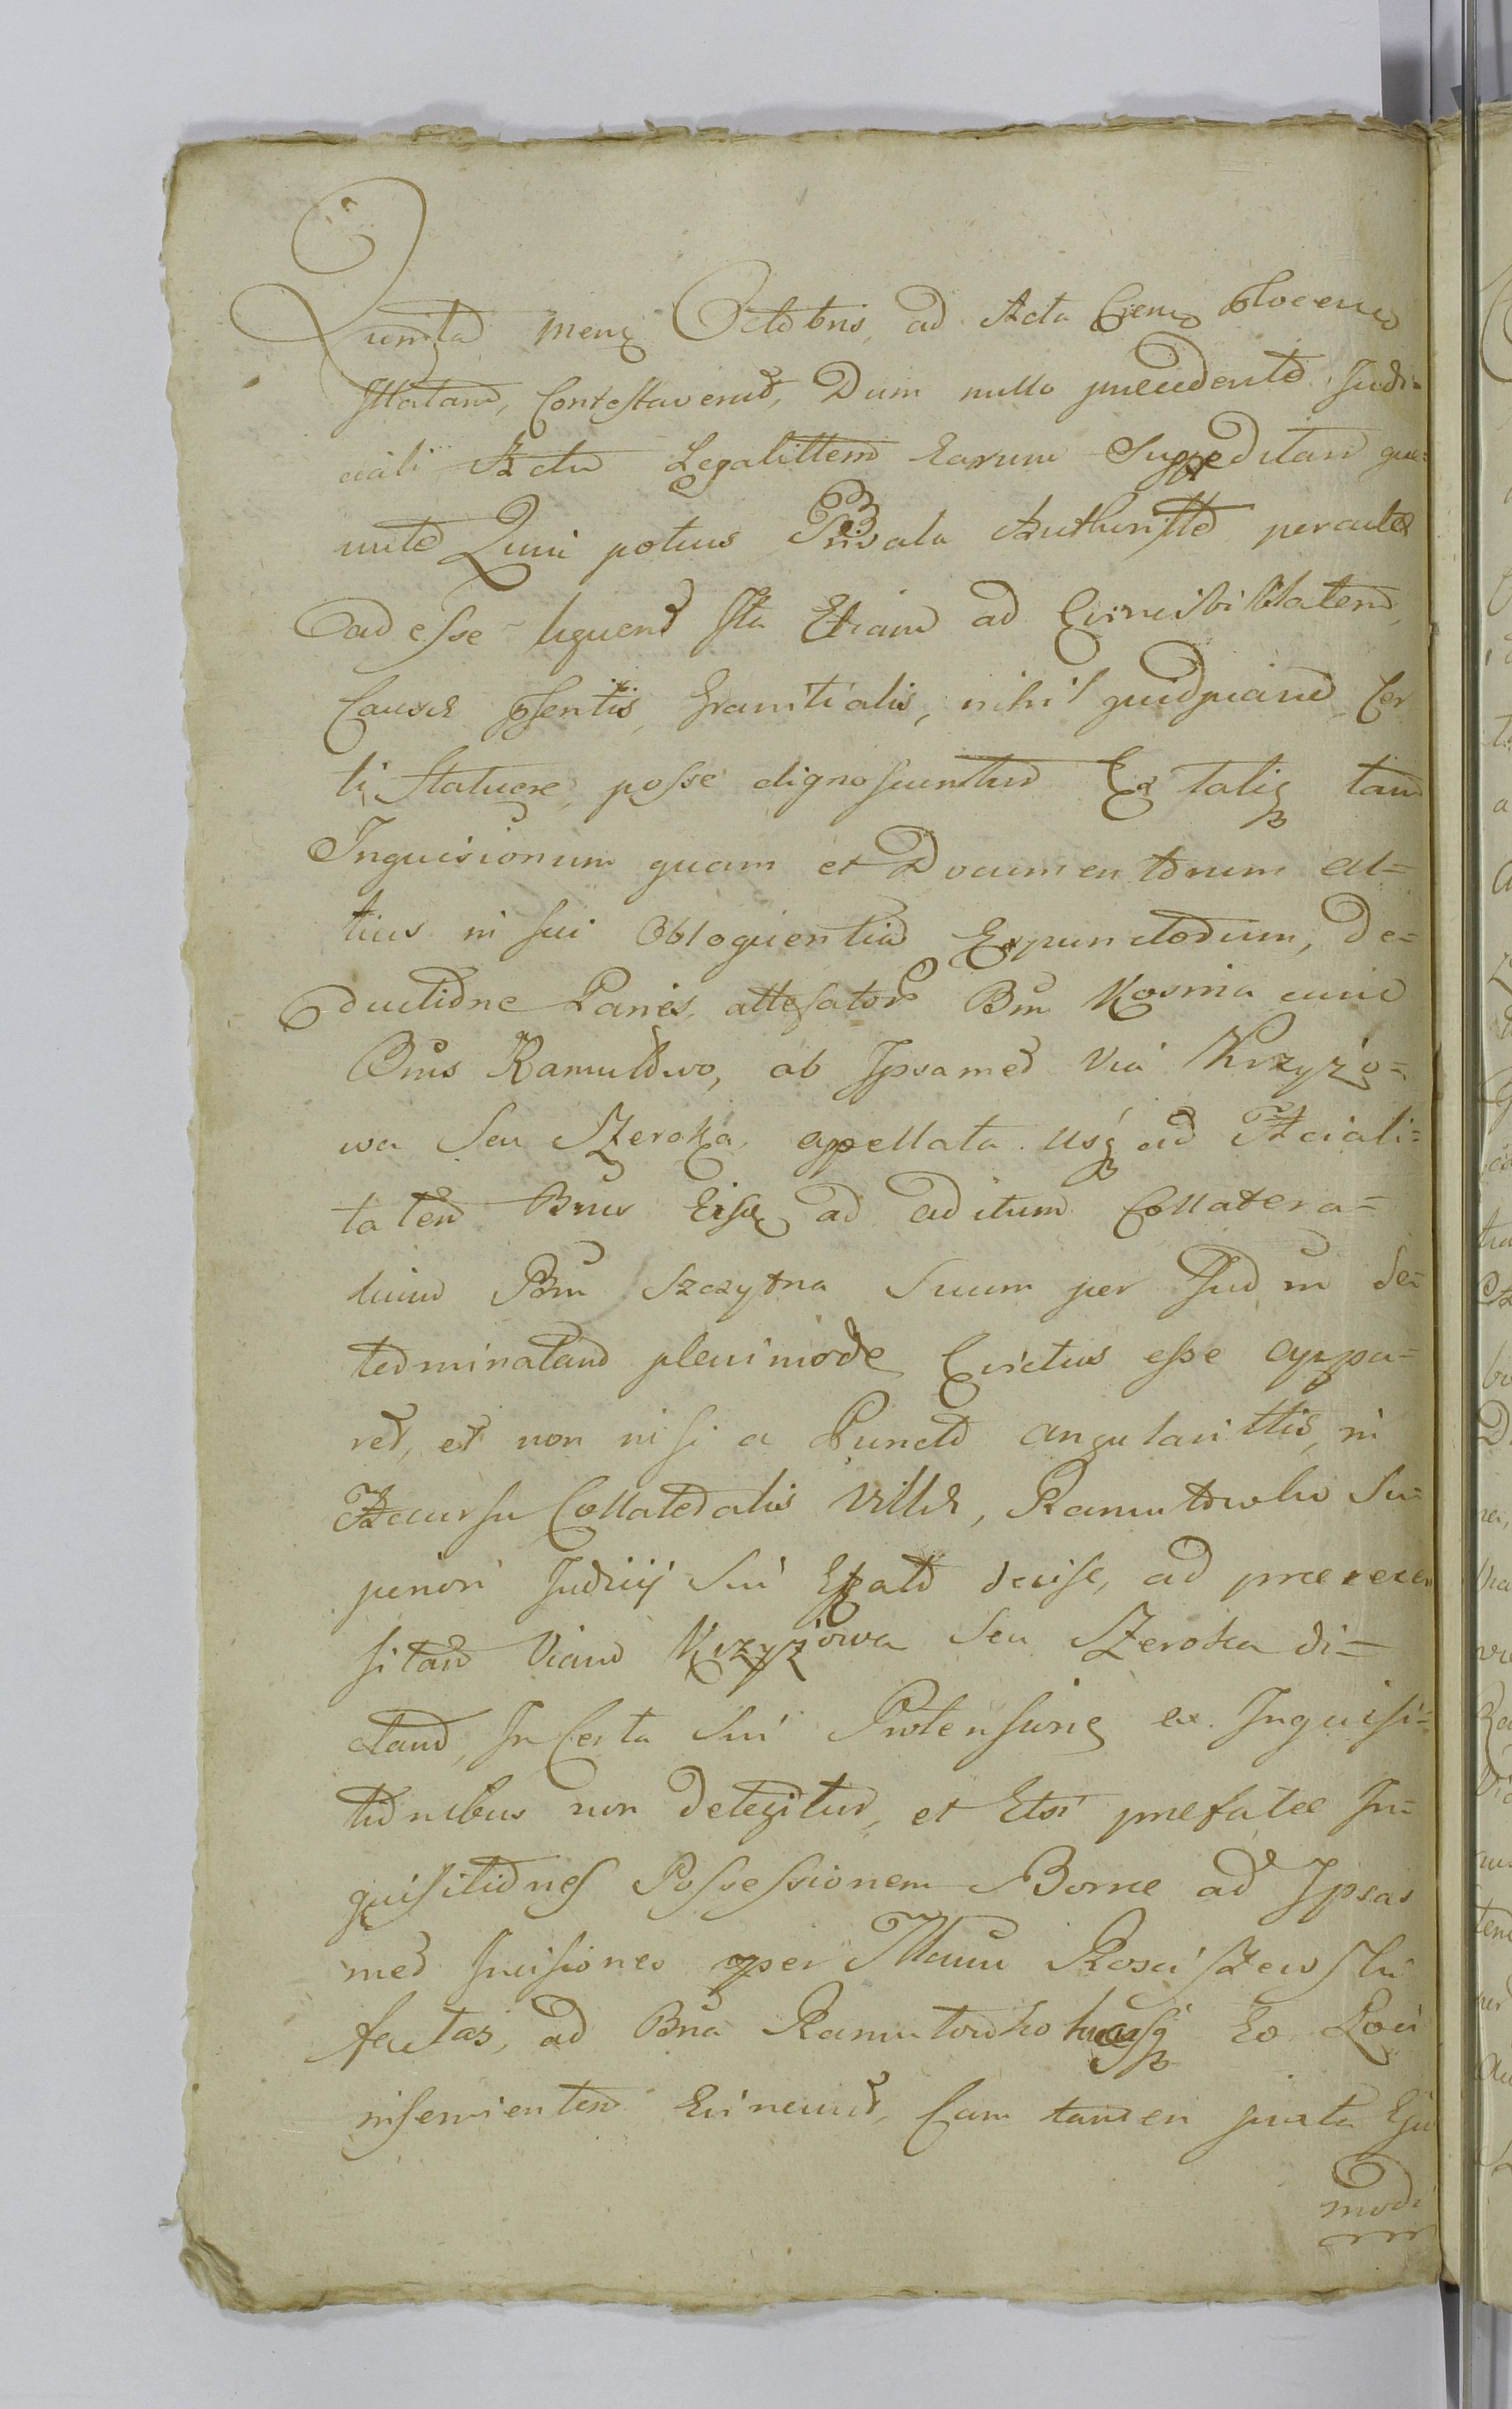 Quinta mens Octobris, ad Acta
Illatam, Contestaverit, Dum nullo precedente Judi-
ciali Actu Legalittem Earum Suppeditari que-
unte Quin potius Privata Authoritte peractas
adesse liqueat Ita Etiam ad Evincibilitatem,
Causæ pñtis, Granitialis, nihil quidpiam Cer
ti Statuere, posse dignoscuntur Ex Taliq tam
Inquisionum quam et Documentorum al-
tius in sui Obloquentia Expunctorum, De-
ductione Paries, attesator Bm Kosmia cum
Bnis Ramultowo, ab Ipsamet Via Krzyżo-
wa Seu Szeroka, apellata usq ad Acciali-
tatem Bnis Eisd ad aditum Collatera-
lium Bm Szczytna Suum per Jud in de-
terminatam plenimode Evictus esse appa-
ret, et non nisi a Puncto angularittis, in
Accursu Collateralis Villæ, Ramutowko Su-
periori Judicij Sui decise, ad præecen
sitam Viam Krzyżowa Seu Szeroka di-
ctam, Incerta Sui Protensione ex Inquisi-
tionibus non Detegitur, et Etsi prefatæ In-
quisitiones Possessionem Borræ ad Ipsas
met Incisiones per Mattm Rosciszewski
factas, ad Bna Ramutowko Eo Loci
inservientem Evincunt, Eam tamen juxta Eju
modi